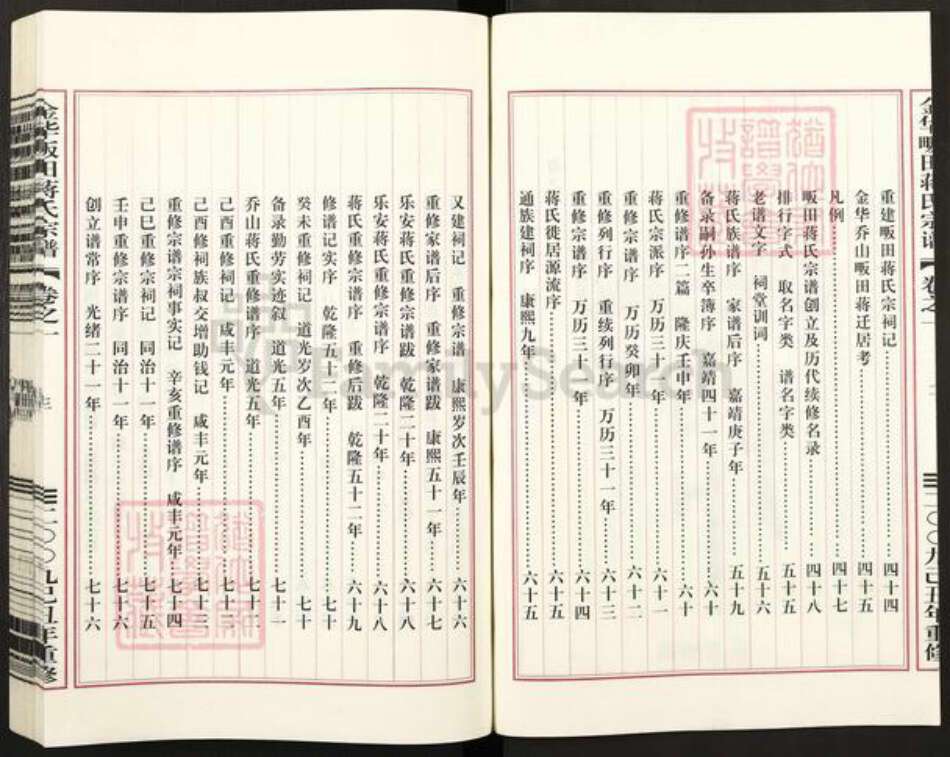 重建畈田蒋氏宗祠记 四十四
金华乔山畈田蒋迁居考 四十五
凡例 四十七
畈田蒋氏宗谱创立及历代续修名录 四十八
排行字式 取名字类 谱名字类 五十五
老谱文字 祠堂训词 五十六
蒋氏族谱序 家谱后序 嘉靖庚子年 五十九
备录嗣孙生卒簿序 嘉靖四十一年 六十
重修谱序二篇 隆庆壬申年 六十
蒋氏宗派序 万历三十年 六十一
重修谱序 万历癸卯年 六十二
重修列行序 重续列行序 万历三十一年 六十三
重修谱序 万历三十年 六十四
蒋氏徙居源流序 六十五
通族建祠序 康熙九年 六十五
又建祠记 重修宗谱 康熙岁次壬辰年 六十六
重修家谱后序 重修家谱跋 康熙五十一年 六十七
乐安蒋氏重修宗谱跋 乾隆二十年 六十八
乐安蒋氏重修宗谱序 乾隆二十年 六十八
蒋氏重修宗谱序 重修后跋 乾隆五十二年 六十九
修谱记实序 乾隆五十二年 七十
癸未重修祠记 道光岁次乙酉年 七十
备录勤劳实迹叙 道光五年 七十一
乔山蒋氏重修谱序 道光五年 七十二
己酉重修祠记 咸丰元年 七十二
己酉修祠族叔交增助钱记 咸丰元年 七十三
重修宗谱宗祠事实记 辛亥重修谱序 咸丰元年 七十四
己巳重修宗祠记 同治十一年 七十五
壬申重修宗谱序 同治十一年 七十六
创立谱常序 光绪二十一年 七十六
金华畈田蒋氏宗谱【卷之一
二〇〇九己丑年重修